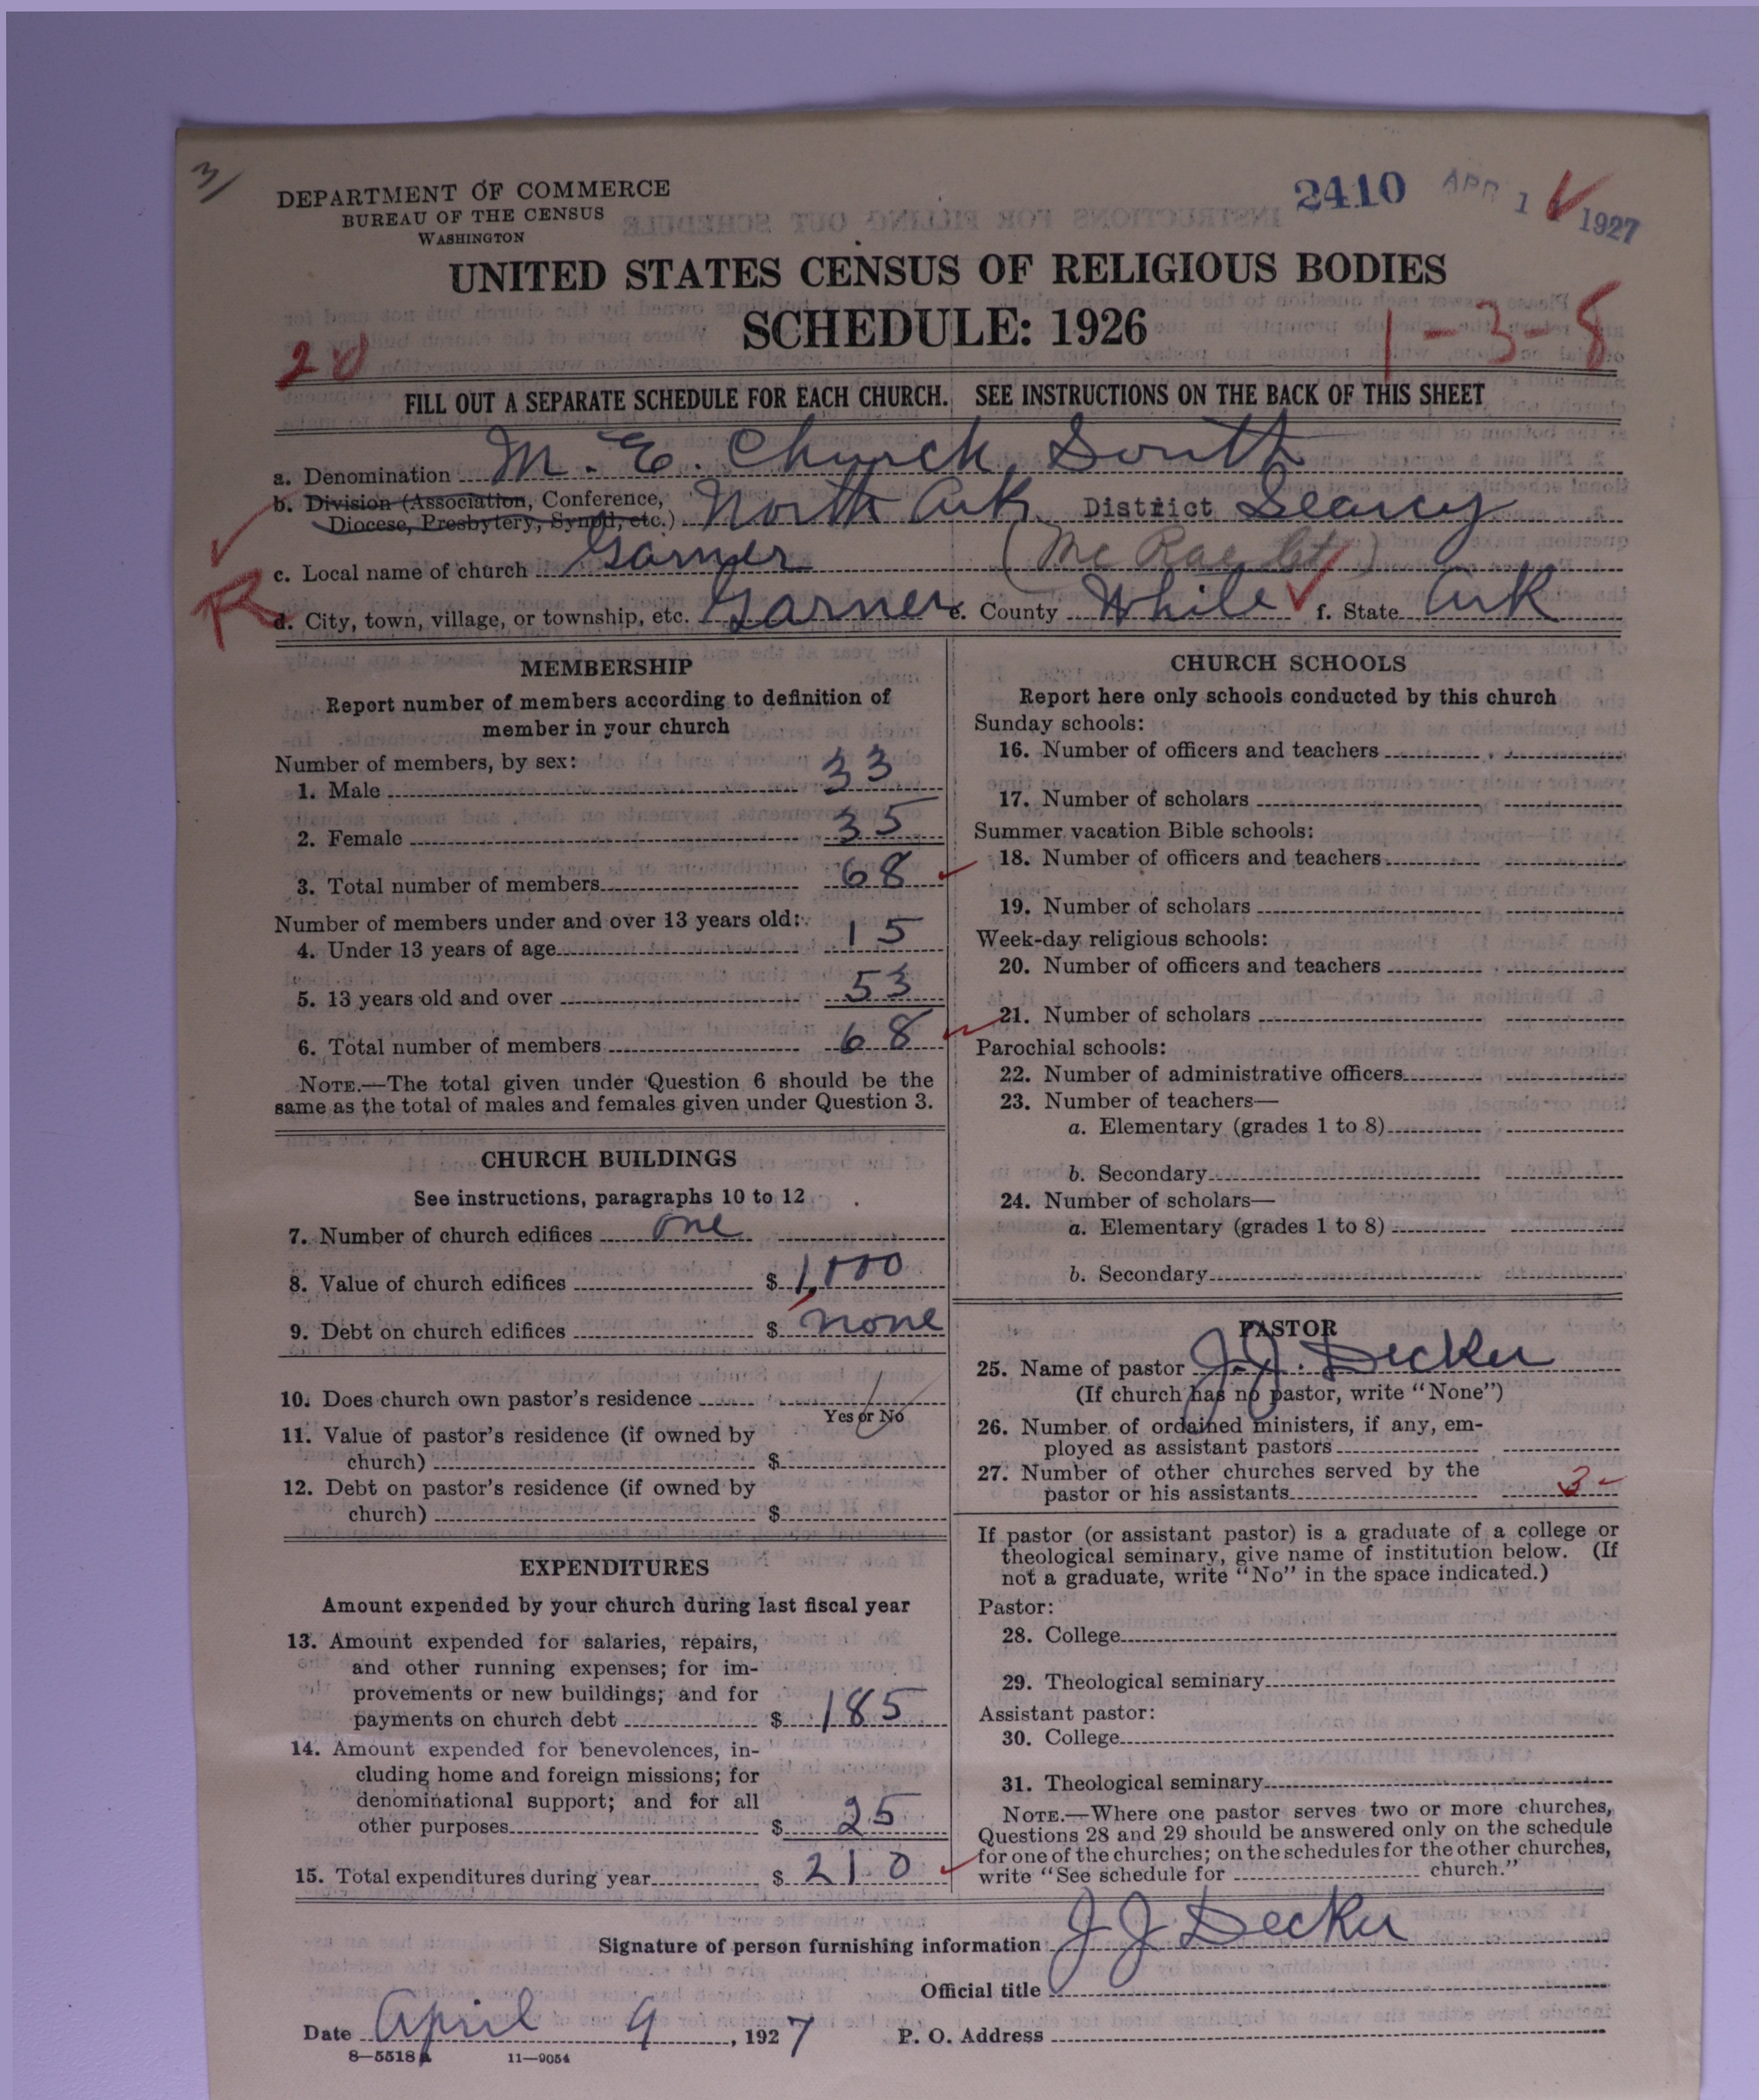 3/
DEPARTMENT OF COMMERCE
BUREAU OF THE CENSUS
WASHINGTON
2410 APR 1 1927
UNITED STATES CENSUS OF RELIGIOUS BODIES
SCHEDULE: 1926
20
1-3-8
FILL OUT A SEPARATE SCHEDULE FOR EACH CHURCH. SEE INSTRUCTIONS ON THE BACK OF THIS SHEET
a. Denomination M. E. Church, South
b. Division (Association, Conference, Diocese, Presbytery, Synod, etc.) North Ark. District Searcy
c. Local name of church Garner (McRae Ct)
R
d. City, town, village, or township, etc. Garner e. County White f. State Ark
MEMBERSHIP
Report number of members according to definition of
member in your church
Number of members, by sex:
1. Male 33
2. Female 35
3. Total number of members 68
Number of members under and over 13 years old:
4. Under 13 years of age 15
5. 13 years old and over 53
6. Total number of members 68
NOTE.—The total given under Question 6 should be the
same as the total of males and females given under Question 3.
CHURCH BUILDINGS
See instructions, paragraphs 10 to 12
7. Number of church edifices one
8. Value of church edifices $ 1,000
9. Debt on church edifices $ none
10. Does church own pastor's residence
Yes or No
11. Value of pastor's residence (if owned by
church) $
12. Debt on pastor's residence (if owned by
church) $
EXPENDITURES
Amount expended by your church during last fiscal year
13. Amount expended for salaries, repairs,
and other running expenses; for im-
provements or new buildings; and for
payments on church debt $ 185
14. Amount expended for benevolences, in-
cluding home and foreign missions; for
denominational support; and for all
other purposes $ 25
15. Total expenditures during year $ 210
CHURCH SCHOOLS
Report here only schools conducted by this church
Sunday schools:
16. Number of officers and teachers
17. Number of scholars
Summer vacation Bible schools:
18. Number of officers and teachers
19. Number of scholars
Week-day religious schools:
20. Number of officers and teachers
21. Number of scholars
Parochial schools:
22. Number of administrative officers
23. Number of teachers—
a. Elementary (grades 1 to 8)
b. Secondary
24. Number of scholars—
a. Elementary (grades 1 to 8)
b. Secondary
PASTOR
25. Name of pastor J. J. Decker
(If church has no pastor, write "None")
26. Number of ordained ministers, if any, em-
ployed as assistant pastors
27. Number of other churches served by the
pastor or his assistants 3
If pastor (or assistant pastor) is a graduate of a college or
theological seminary, give name of institution below. (If
not a graduate, write "No" in the space indicated.)
Pastor:
28. College
29. Theological seminary
Assistant pastor:
30. College
31. Theological seminary
NOTE.—Where one pastor serves two or more churches,
Questions 28 and 29 should be answered only on the schedule
for one of the churches; on the schedules for the other churches,
write "See schedule for church."
Signature of person furnishing information J J Decker
Official title
Date April 9, 1927 P. O. Address
8—5518a 11—9054